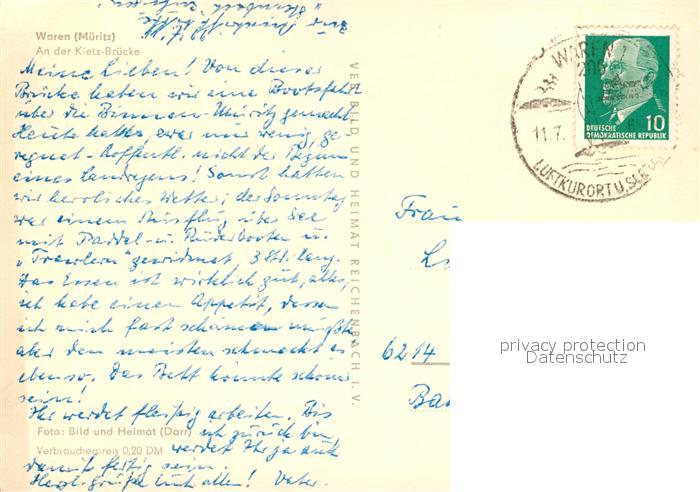 Waren (Müritz)
An der Kietz-Brücke
11.7.66
Meine Lieben! Von dieser
Brücke haben wir eine Bootsfahrt
über die Binnen-Müritz gemacht.
Heute hatte es zwar nur wenig ge-
regnet. Hoffentl. nicht der Beginn
eines Landregens! Sonst hatten
wir herrliches Wetter; der Sonntag
war einem Ausflug über See
mit Paddel- u. Ruderbooten u.
"Trawlern" gewidmet, 3 Std. lang.
Das Essen ist wirklich gut, alles,
ich habe einen Appetit, dessen
ich mich fast schämen müßte
aber den meisten schmeckt es
ebenso. Das Bett könnte schöner
sein!
Ihr werdet fleißig arbeiten. Bis
Foto: Bild und Heimat (Darr)
ich zurück bin,
Verbraucherpreis 0,20 DM
werdet Ihr ja auch
damit fertig sein.
Herzl. Grüße Euch allen! Vater.
VEB BILD UND HEIMAT REICHENBACH I. V.
WAREN
206
11.7.
LUFTKURORT U.
DEUTSCHE
DEMOKRATISCHE REPUBLIK
10
Frau
6214
privacy protection
Datenschutz